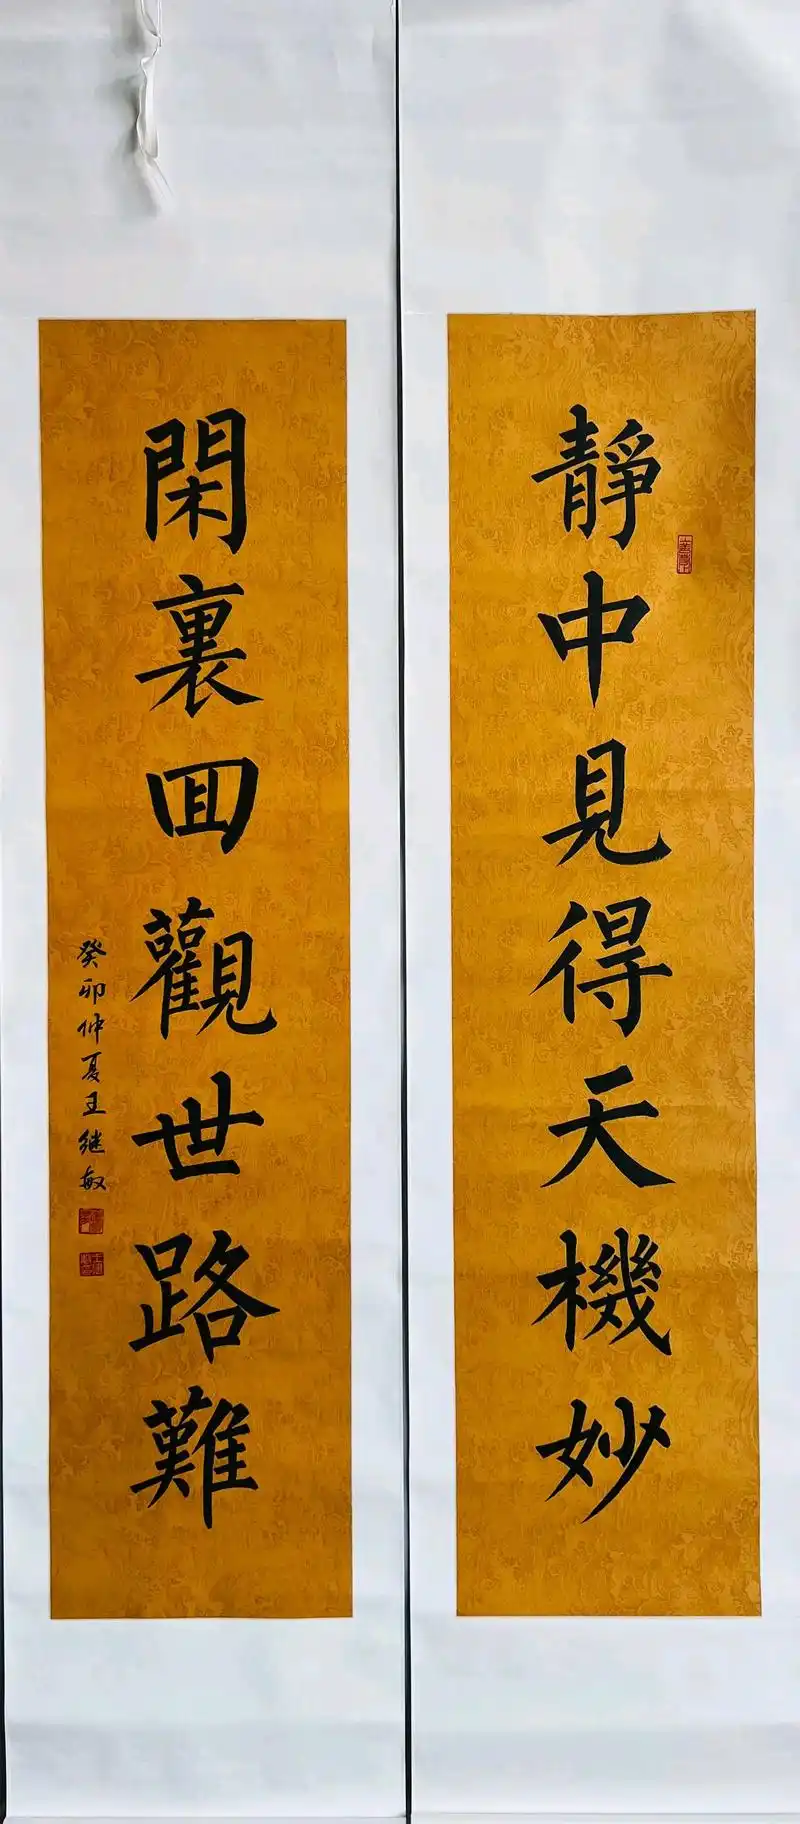 靜中見得天機妙
閑裏回觀世路難
癸卯仲夏王继敏